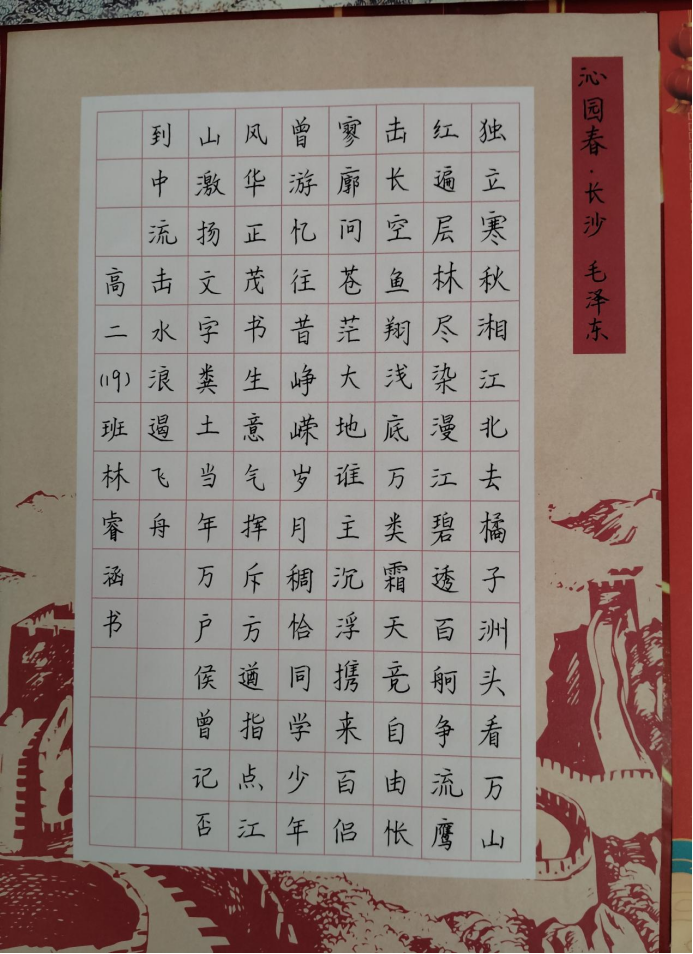 沁园春·长沙 毛泽东
独立寒秋湘江北去橘子洲头看万山
红遍层林尽染漫江碧透百舸争流鹰
击长空鱼翔浅底万类霜天竞自由怅
寥廓问苍茫大地谁主沉浮携来百侣
曾游忆往昔峥嵘岁月稠恰同学少年
风华正茂书生意气挥斥方遒指点江
山激扬文字粪土当年万户侯曾记否
到中流击水浪遏飞舟
高二(19)班林睿涵书